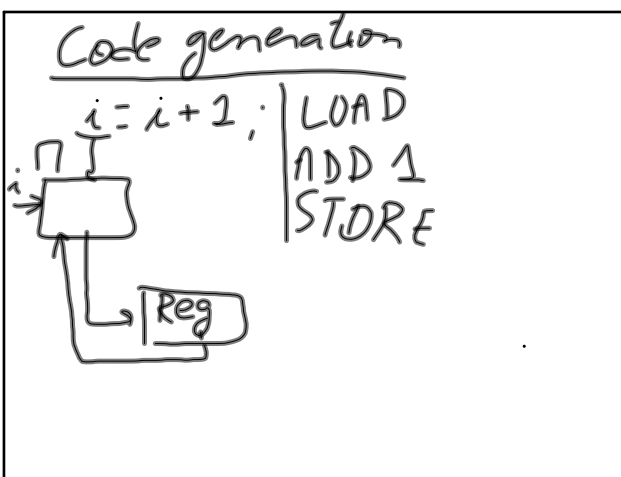 Code generation
i = i + 1 ;
LOAD
ADD 1
STORE
i
Reg